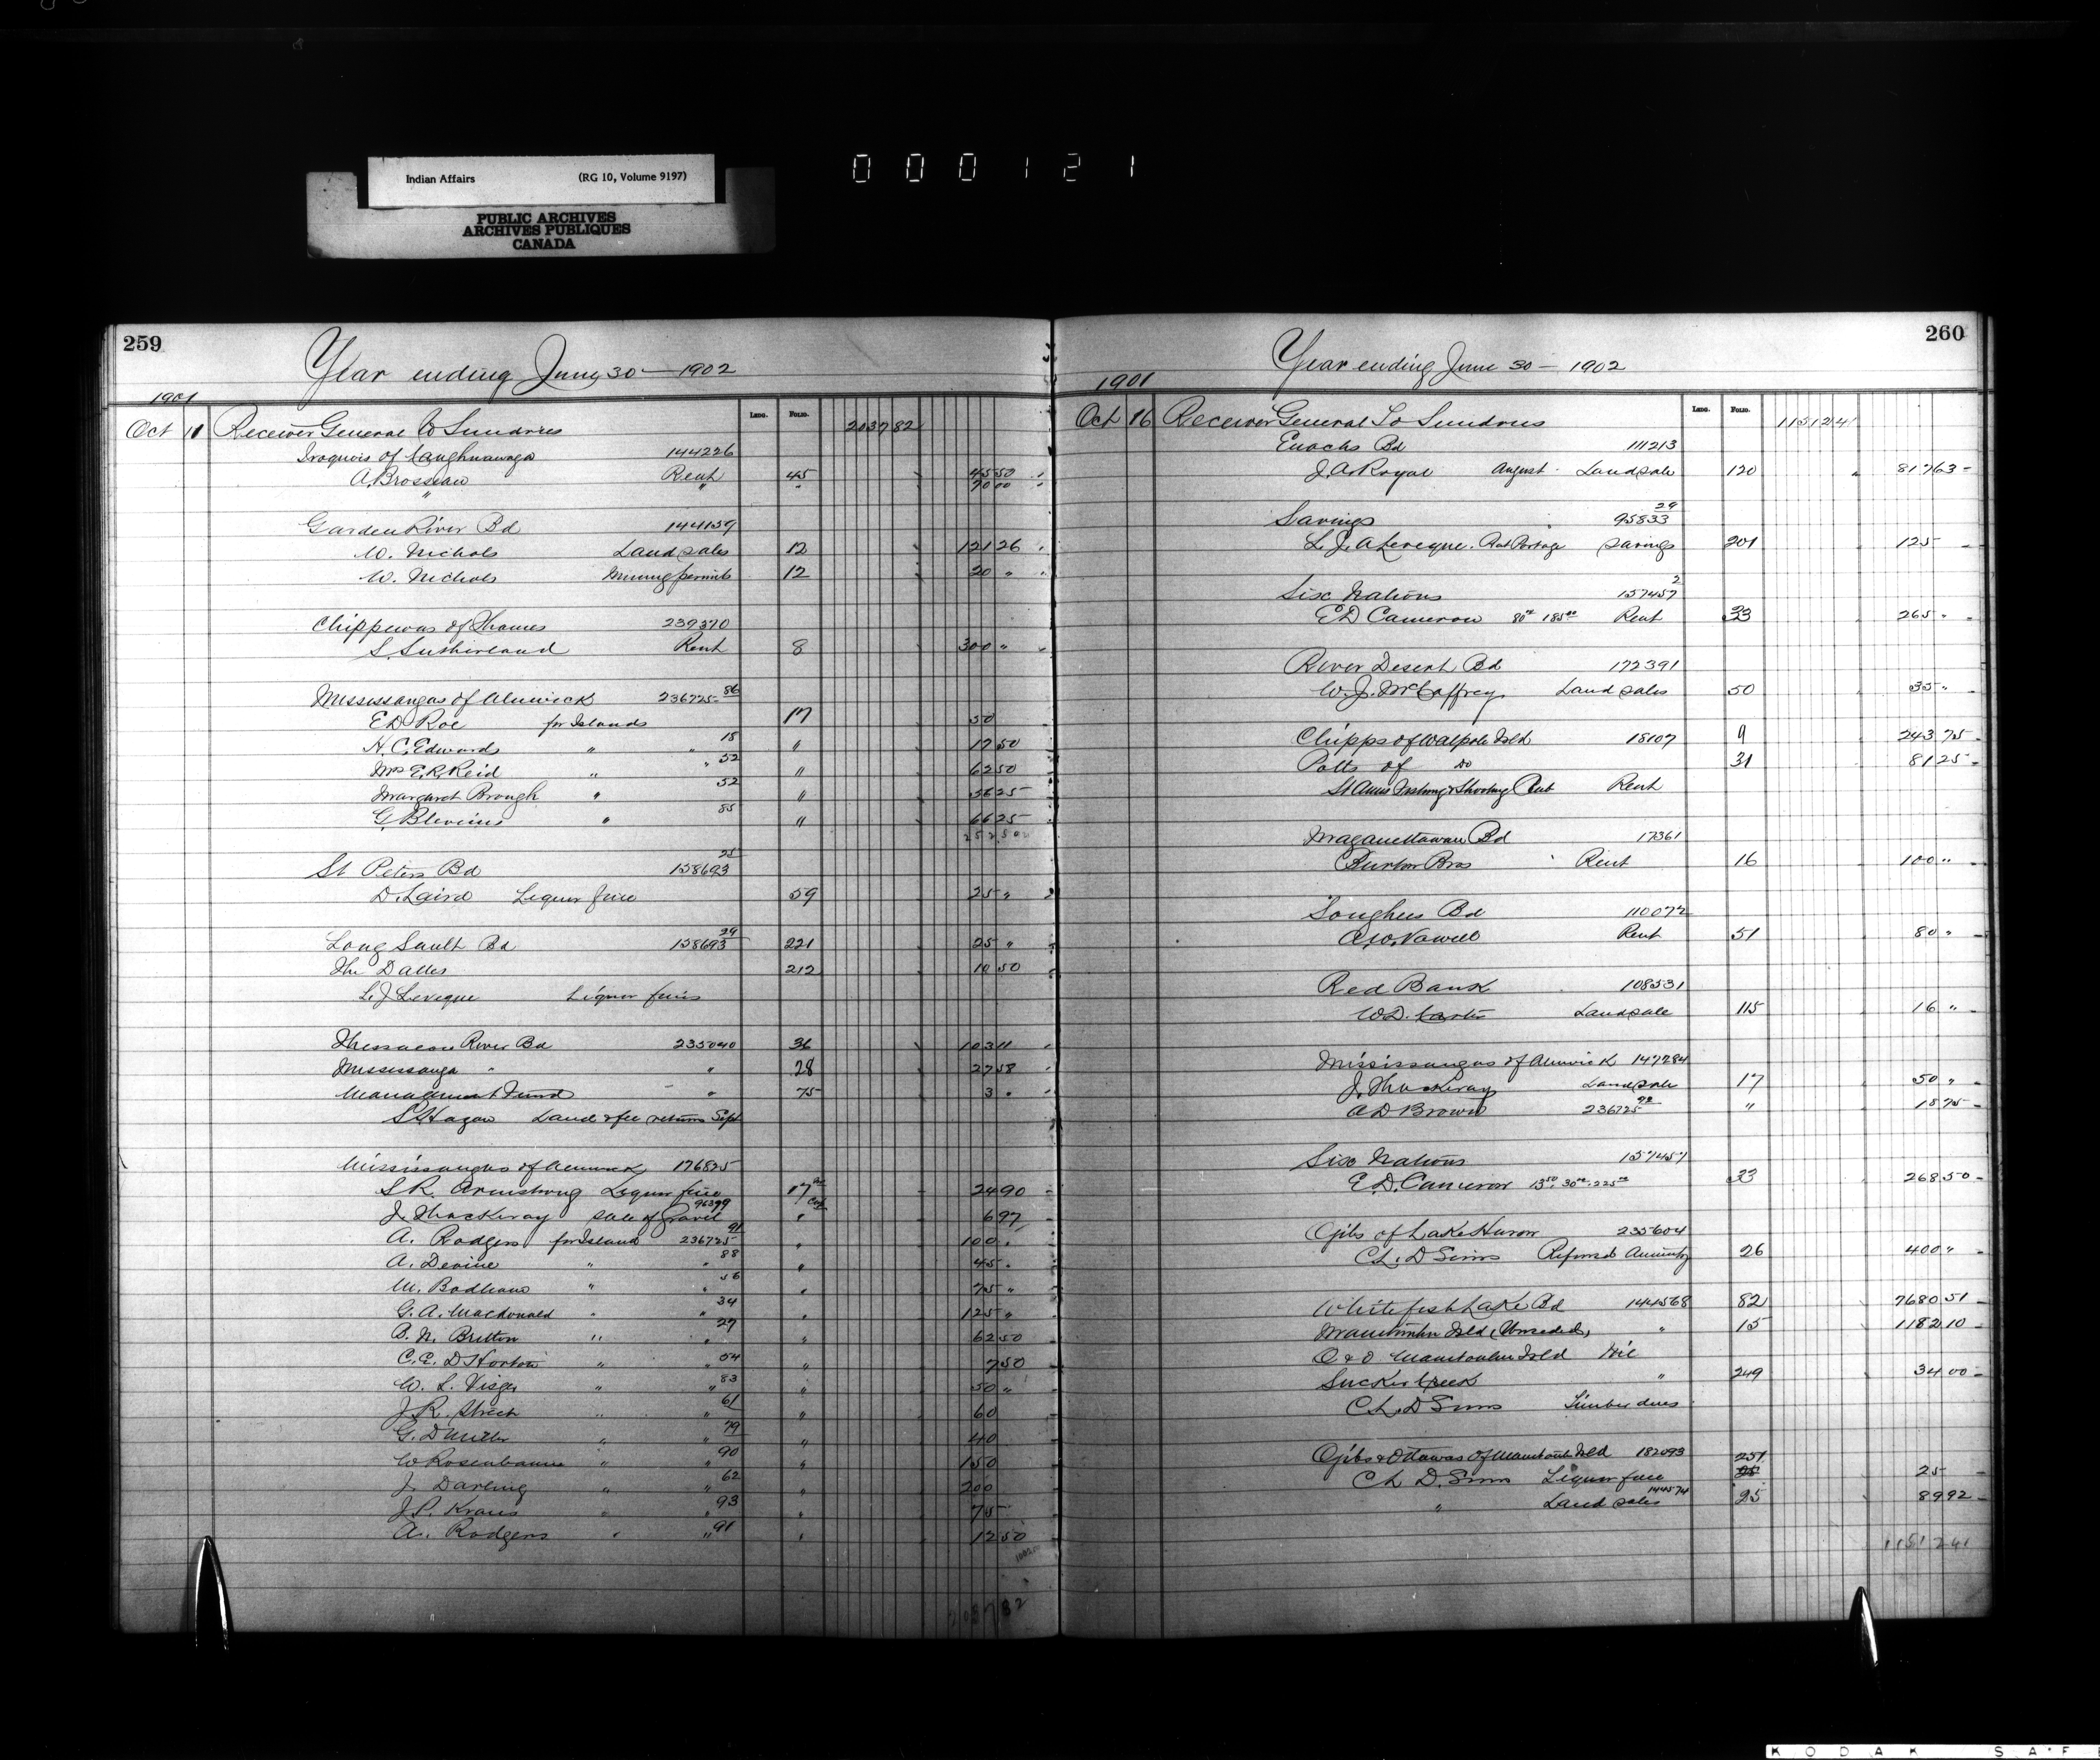 000121
Indian Affairs (RG 10, Volume 9197)
PUBLIC ARCHIVES
ARCHIVES PUBLIQUES
CANADA
259
Year ending June 30 — 1902
1901
LEDG. FOLIO.
Oct 11 Receiver General To Sundries 2037 82
Iroquois of Caughnawaga 144226
A. Brosseau Rent 45 45 50
" " " 70 00
Garden River Bd 144159
W. Nichols Land sales 12 121 26
W. Nichols Mining permits 12 20 "
Chippewas of Thames 239370
S. Sutherland Rent 8 300 "
Mississaugas of Alnwick 236725 86
E D Roe for Islands 17 50
H. C. Edwards " " 18 " 17 50
Mrs E. R. Reid " " 52 " 62 50
Margaret Brough " 52 " 56 25
G. Blevins " 85 " 66 25
252 50
St Peters Bd 158693 25
D. Laird Liquor fine 59 25 "
Long Sault Bd 158693 29 221 25 "
The Dalles 212 10 50
L. J. Leveque Liquor fines
Thessalon River Bd 235040 36 103 11
Mississauga " " 28 27 58
Management Fund " 75 3 "
S Hagan Land & fee returns Sept
Mississaugas of Alnwick 176825
S. R. Armstrong Liquor fine 17 24 90
J. Thackeray Sale of Gravel 96399 " 6 97
A. Rodgers for Island 236725 91 " 100 "
A. Devine " " 88 " 45 "
M. " " 56 " 75 "
G. A. Macdonald " " 34 " 125 "
B. N. Britton " " 27 " 62 50
C. E. D Horton " " 54 " 7 50
W. L. Visger " " 83 " 50 "
J. R. " " 61 " 60
G. D Miller " " 79 " 40
W Rosenbaum " " 90 " 150
J. Darling " " 62 " 200
J. P. Kraus " " 93 " 75
A. Rodgers " " 91 " 12 50
2037 82
260
Year ending June 30 — 1902
1901
LEDG. FOLIO.
Oct 16 Receiver General To Sundries 11512 41
Enochs Bd 111213
J. A. Royal August Land sale 120 817 63
Savings 95833 29
L. J. A Leveque. Rat Portage Savings 201 125
Six Nations 157457 2
E D Cameron 80 00 185 00 Rent 33 265 "
River Desert Bd 172391
W. J. McCaffrey Land sales 50 35 "
Chipps of Walpole Isld 18107 9 243 75
Potts of Do 31 81 25
St Anns Fishing & Shooting Club Rent
Maganettawan Bd 17361
Burton Bros Rent 16 100 "
Songhees Bd 110072
A. W. Vowell Rent 51 80 "
Red Bank 108531
W. D. Carter Land sale 115 16 "
Mississaugas of Alnwick 147284
J. Thackeray Land sale 17 50 "
A D Brown 236725 92 " 18 75
Six Nations 157457
E. D. Cameron 13 50 30 00 225 00 33 268 50
Ojibs of Lake Huron 235604
C. L. D Sims Refund Annuity 26 400 "
Whitefish Lake Bd 144568 82 7680 51
Manitoulin Isld (Unceded) " 15 1182 10
O & O Manitoulin Isld Nil
Sucker Creek " 249 34 00
C. L. D Sims Timber dues
Ojibs & Ottawas of Manitoulin Isld 182093 251
C L D. Sims Liquor fine 25 25
" Land sales 144574 25 89 92
11512 41
KODAK SAF